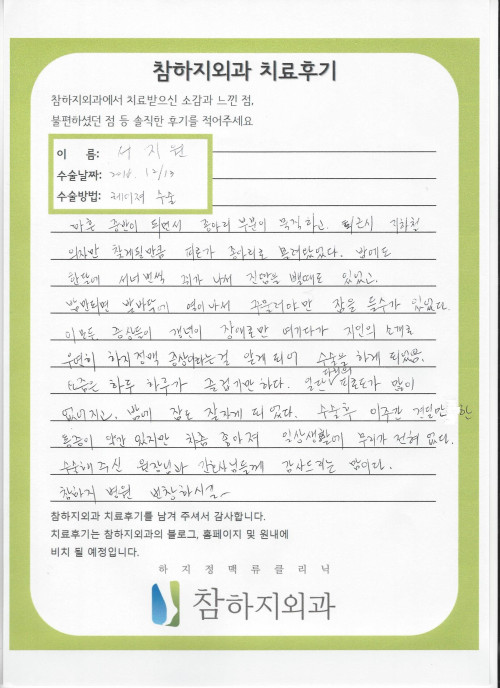 참하지외과 치료후기
참하지외과에서 치료받으신 소감과 느낀 점,
불편하셨던 점 등 솔직한 후기를 적어주세요
이 름: 서지원
수술날짜: 2016. 12/13
수술방법: 레이져 수술
마흔 중반이 되면서 종아리 부분이 묵직하고. 퇴근시 지하철
의자만 찾게될만큼 피로가 종아리로 몰려왔었다. 밤에도
한밤에 서너번씩 쥐가 나서 진땀을 뺄때도 있었고.
밤만되면 발바닥에 열이나서 주물러야만 잠을 들수가 있었다.
이모든 증상들이 갱년이 장애로만 여기다가 지인의 소개로
우연히 하지정맥 증상이라는걸 알게되어 수술을 하게 되었음.
요즘은 하루 하루가 즐겁기만하다. 일단 다리의 피로도가 많이
없어지고. 밤에 잠도 잘자게 되었다. 수술후 이주간 견딜만 한
통증이 약간 있지만 차츰 좋아져 일상생활에 무리가 전혀 없다.
수술해주신 원장님과 간호사님들께 감사드리는 맘이다.
참하지 병원 번창하시길~
참하지외과 치료후기를 남겨 주셔서 감사합니다.
치료후기는 참하지외과의 블로그, 홈페이지 및 원내에
비치 될 예정입니다.
하지정맥류클리닉
참하지외과